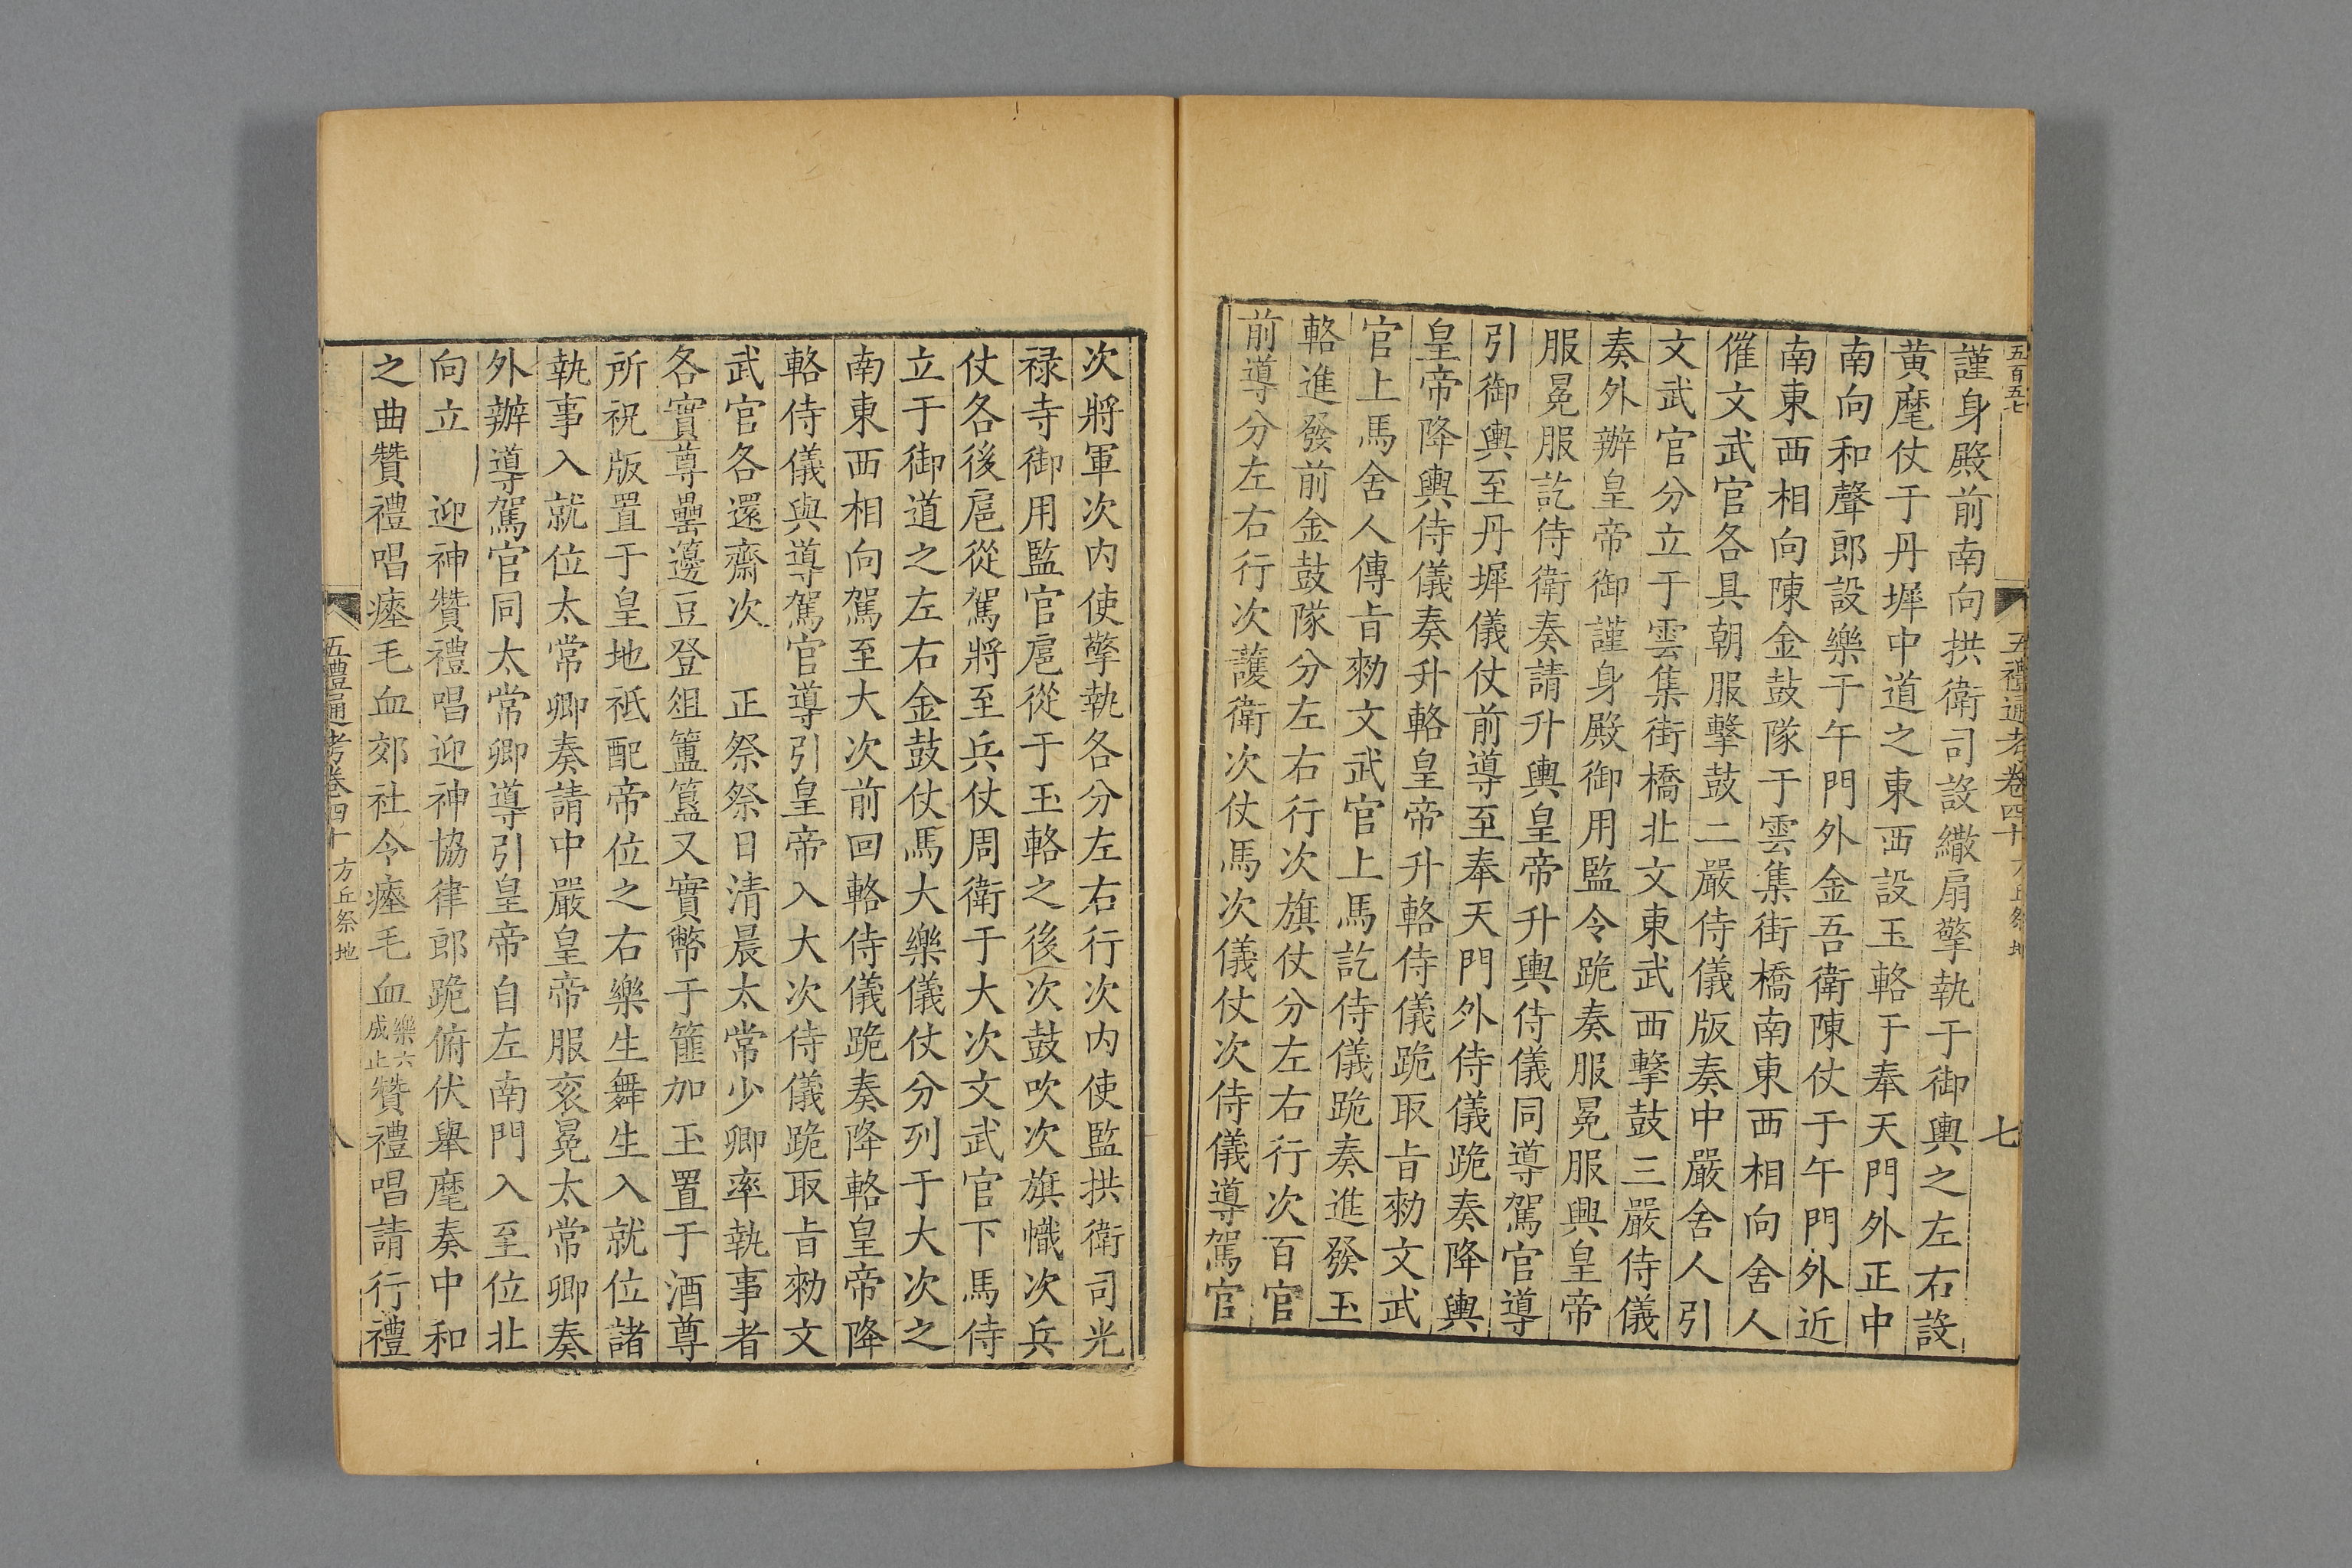 五百五七
五禮通考卷四十 方丘祭地
七
謹身殿前南向拱衛司設繖扇擎執于御輿之左右設
黃麾仗于丹墀中道之東西設玉輅于奉天門外正中
南向和聲郎設樂于午門外金吾衛陳仗于午門外近
南東西相向陳金鼓隊于雲集街橋南東西相向舍人
催文武官各具朝服擊鼓二嚴侍儀版奏中嚴舍人引
文武官分立于雲集街橋北文東武西擊鼓三嚴侍儀
奏外辦皇帝御謹身殿御用監令跪奏服冕服興皇帝
服冕服訖侍衛奏請升輿皇帝升輿侍儀同導駕官導
引御輿至丹墀儀仗前導至奉天門外侍儀跪奏降輿
皇帝降輿侍儀奏升輅皇帝升輅侍儀跪取旨勑文武
官上馬舍人傳旨勑文武官上馬訖侍儀跪奏進發玉
輅進發前金鼓隊分左右行次旗仗分左右行次百官
前導分左右行次護衛次仗馬次儀仗次侍儀導駕官
次將軍次内使擎執各分左右行次内使監拱衛司光
禄寺御用監官扈從于玉輅之後次鼓吹次旗幟次兵
仗各後扈從駕將至兵仗周衛于大次文武官下馬侍
立于御道之左右金鼓仗馬大樂儀仗分列于大次之
南東西相向駕至大次前回輅侍儀跪奏降輅皇帝降
輅侍儀與導駕官導引皇帝入大次侍儀跪取旨勑文
武官各還齋次　正祭祭日清晨太常少卿率執事者
各實尊罍籩豆登俎簠簋又實幣于篚加玉置于酒尊
所祝版置于皇地祇配帝位之右樂生舞生入就位諸
執事入就位太常卿奏請中嚴皇帝服衮冕太常卿奏
外辦導駕官同太常卿導引皇帝自左南門入至位北
向立　迎神贊禮唱迎神協律郎跪俯伏舉麾奏中和
之曲贊禮唱瘞毛血郊社令瘞毛血樂六成止贊禮唱請行禮
五禮通考卷四十 方丘祭地
八